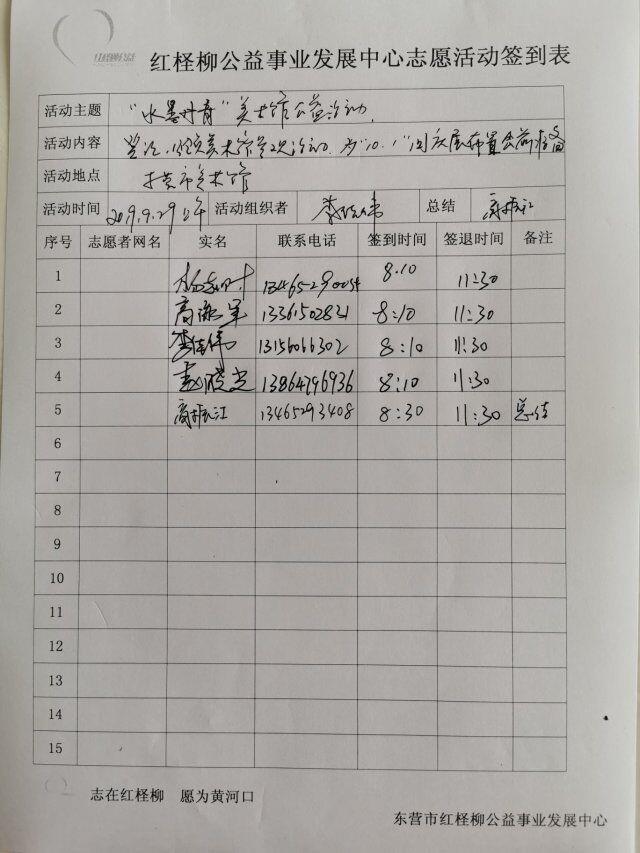 红柽柳公益
红柽柳公益事业发展中心志愿活动签到表
活动主题 "水墨丹青"美术馆公益活动
活动内容 美术馆 活动. 为"10.1"国庆展布置会前准备
活动地点 东营市美术馆
活动时间 2019.9.29上午 活动组织者 李佳伟 总结 高振江
序号 志愿者网名 实名 联系电话 签到时间 签退时间 备注
1 13465290054 8.10 11:30
2 高海军 13361502831 8:10 11:30
3 李佳伟 13156066302 8:10 11:30
4 赵晓光 13864796936 8:10 11:30
5 高振江 13465293408 8:30 11:30 总结
6
7
8
9
10
11
12
13
14
15
志在红柽柳 愿为黄河口
东营市红柽柳公益事业发展中心